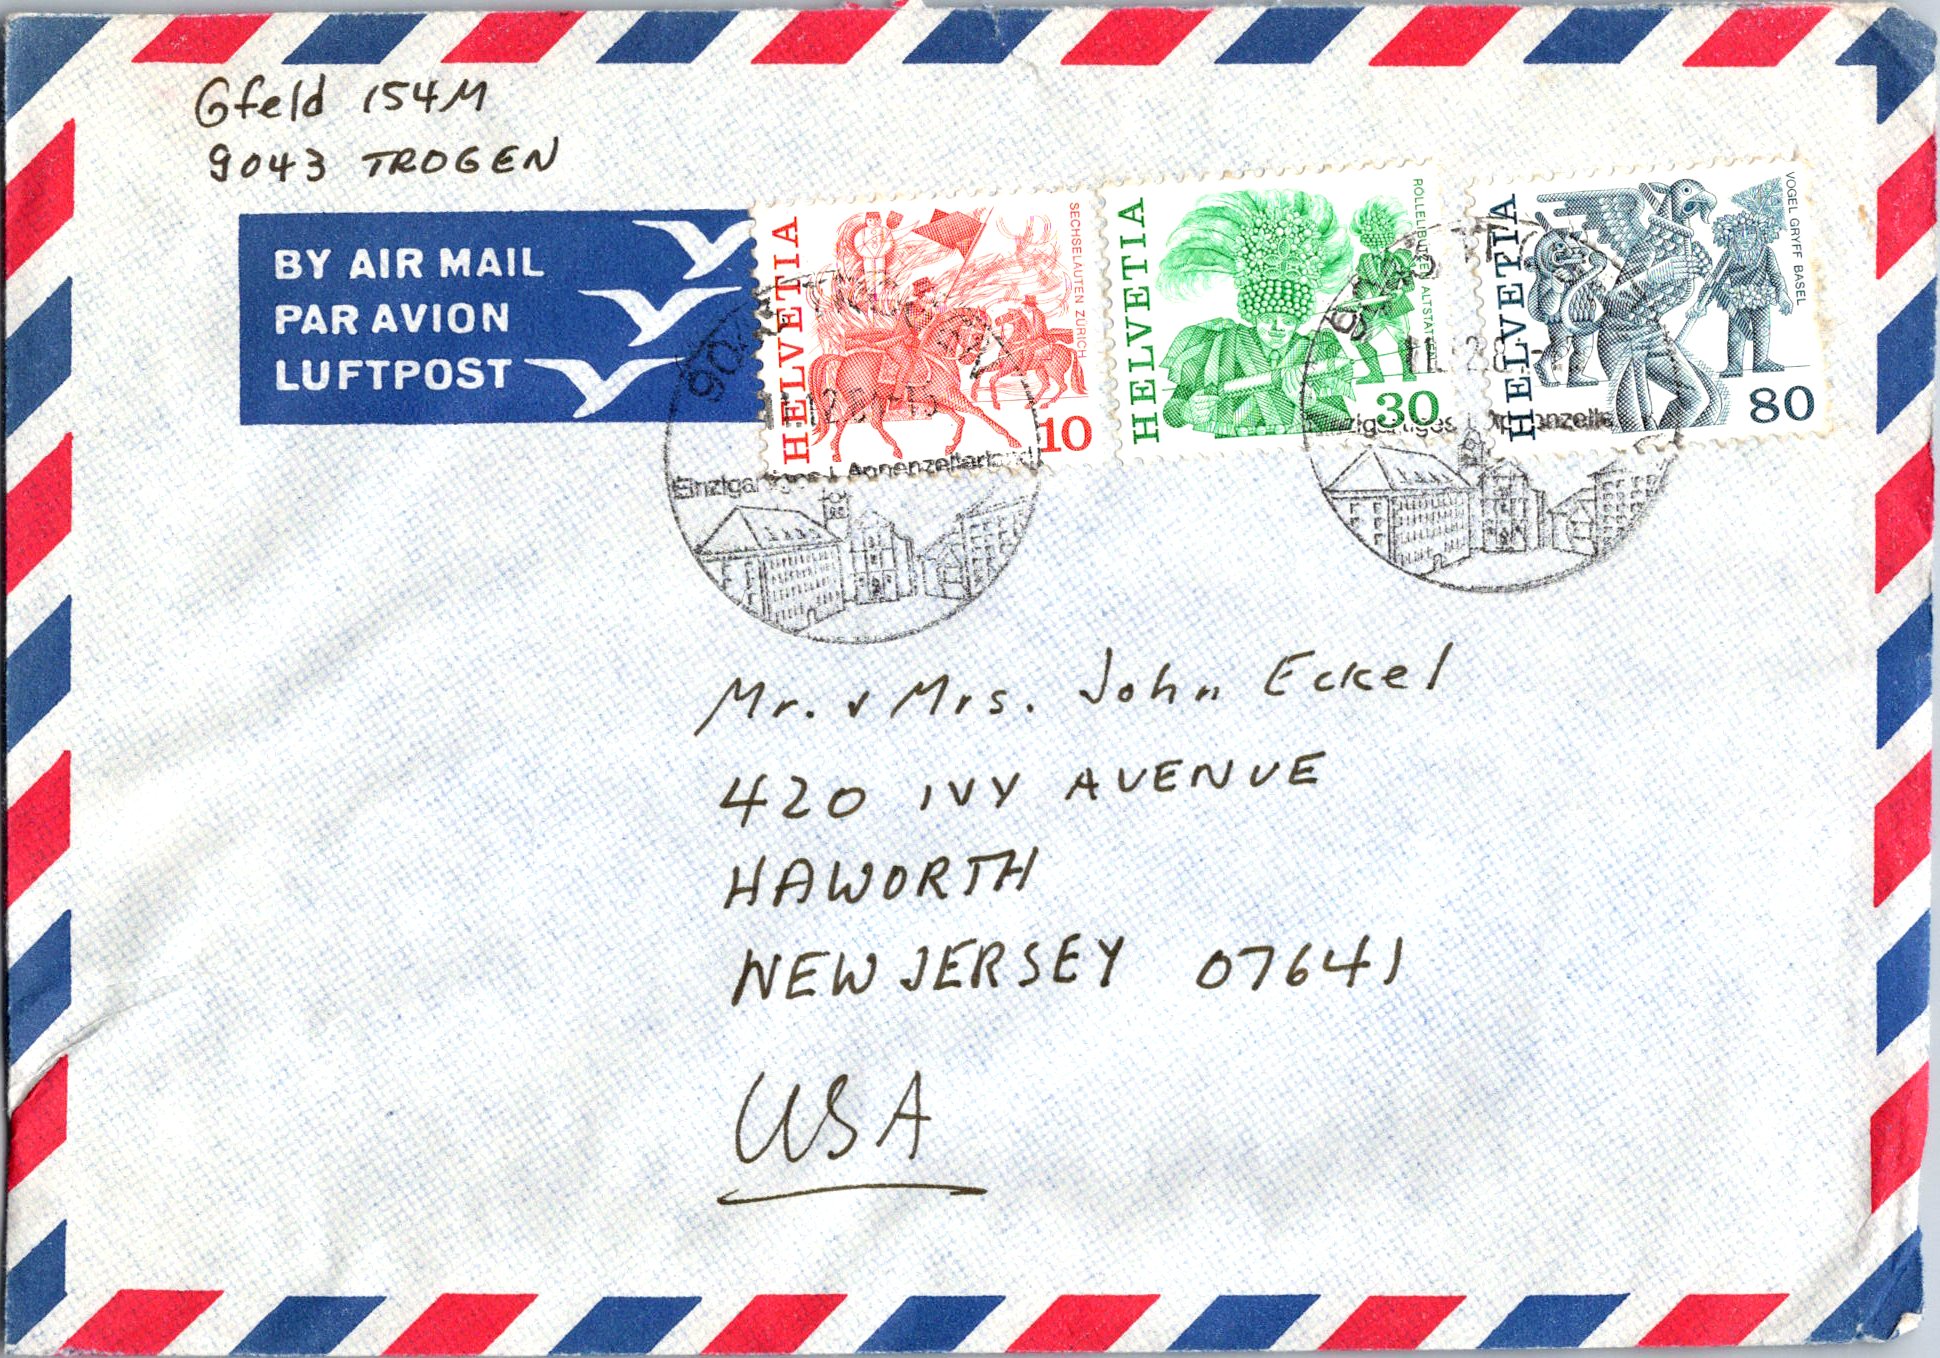 Gfeld 154M
9043 TROGEN
BY AIR MAIL
PAR AVION
LUFTPOST
HELVETIA
SECHSELÄUTEN ZÜRICH
10
HELVETIA
ALTSTÄTTEN
30
HELVETIA
VOGEL GRYFF BASEL
80
TROGEN
Einzigartiges Appenzellerland
Einzigartiges
Mr. & Mrs. John Eckel
420 IVY AVENUE
HAWORTH
NEW JERSEY 07641
USA